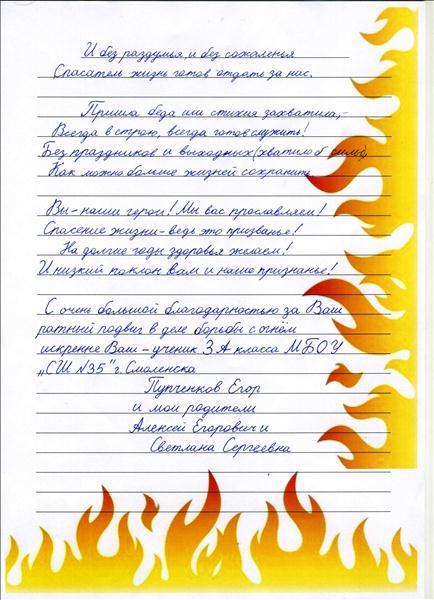 И без раздумья, и без сожаленья
Спасатель жизнь готов отдать за нас.
Пришла беда или стихия захватила,-
Всегда в строю, всегда готов служить!
Без праздников и выходных (хватило б силы),
Как можно больше жизней сохранить
Вы-наши герои! Мы вас прославляем!
Спасение жизни-ведь это призванье!
На долгие годы здоровья желаем!
И низкий поклон Вам и наше признанье!
С очень большой благодарностью за Ваш
ратный подвиг в деле борьбы с огнём
искренне Ваш-ученик 3А класса МБОУ
„СШ №35" г. Смоленска
Пупченков Егор
и мои родители
Алексей Егорович и
Светлана Сергеевна